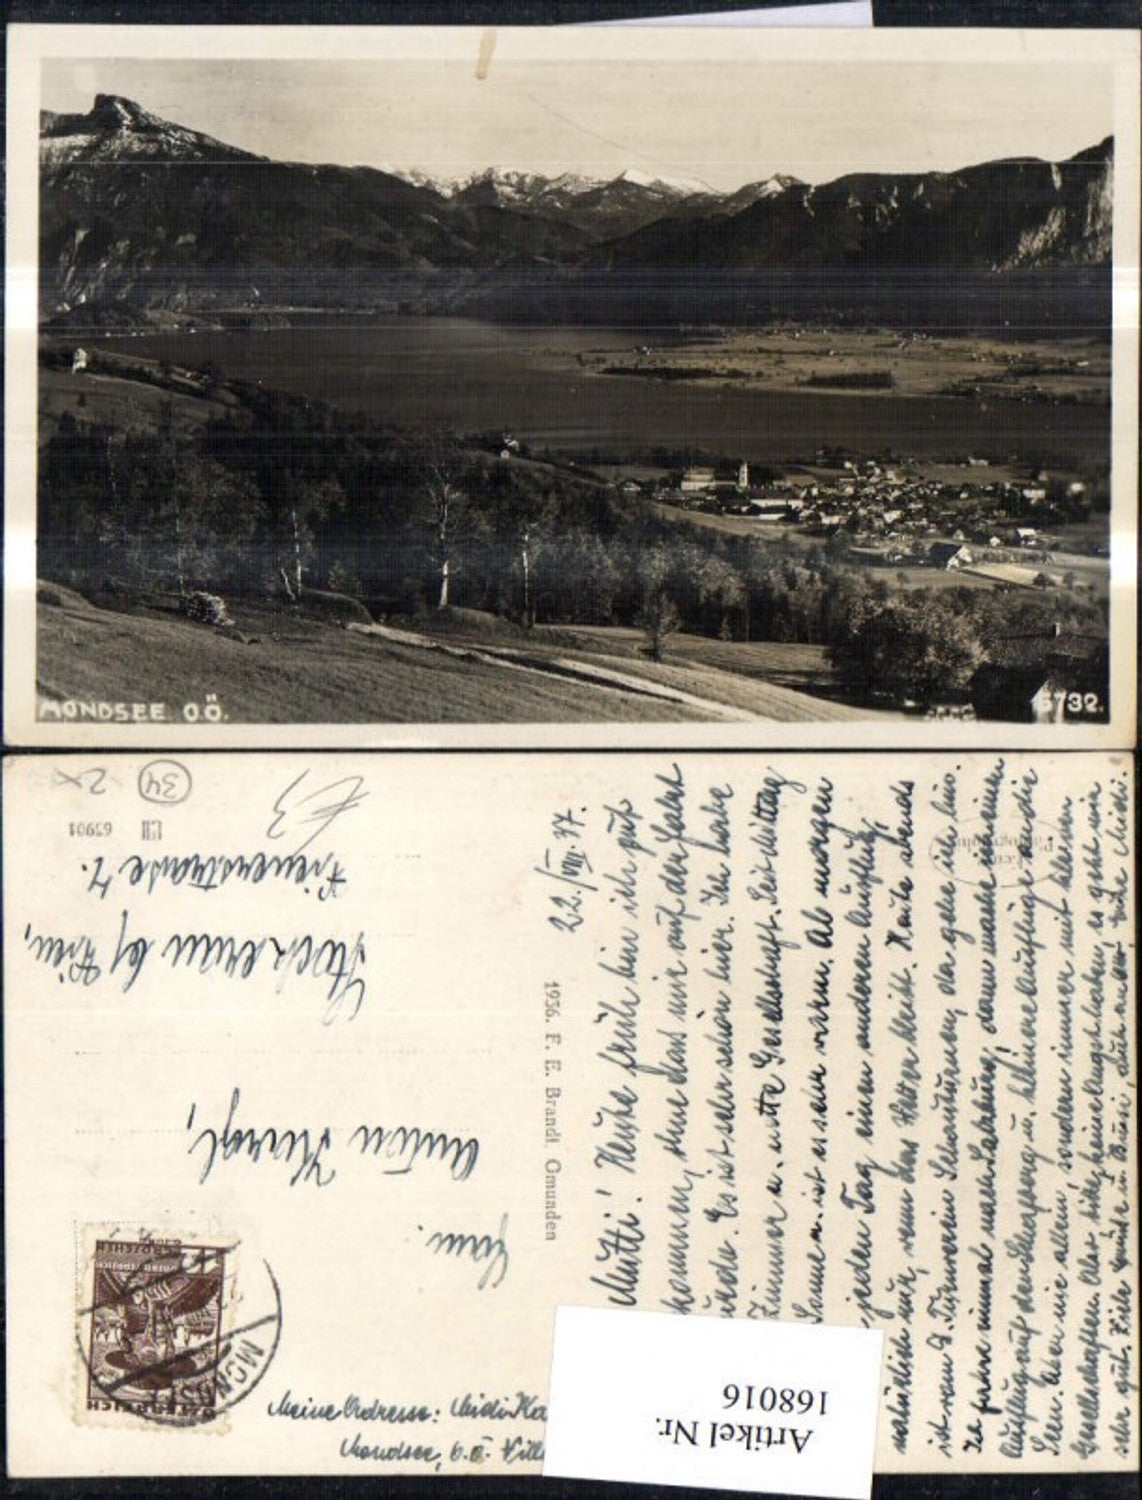 MONDSEE O.Ö.
16732.
22./VIII. 37.
Mutti! Heute früh bin ich gut
kommen, ohne dass mir auf der Fahrt
wurde. Es ist sehr schön hier. Ich habe
Zimmer u. nette Gesellschaft. Seit Mittag
Sonne u. ist es sehr warm. Ab morgen
jeden Tag einen anderen Ausflug,
natürlich nur, wenn das Wetter bleibt. Heute abends
ist vom d. Turnverein Schauturnen, da gehe ich hin.
Ich fahre einmal nach Salzburg, dann mache ich einen
Ausflug auf den Schafberg u. kleinere Ausflüge an die
Seen. Aber nie allein, sondern immer mit kleinen
Gesellschaften. Also bitte keine Angst haben, es geht mir
sehr gut. Viele Grüße u. Bussi, auch an
1936. F. E. Brandt Gmunden
Herrn
Anton
Stockerau b/ Wien,
Wienerstrasse 7.
Meine Adresse: Midi
Mondsee, O.Ö. Vill
ÖSTERREICH
MONDS
63901
34
2x
€3
Artikel Nr.
168016